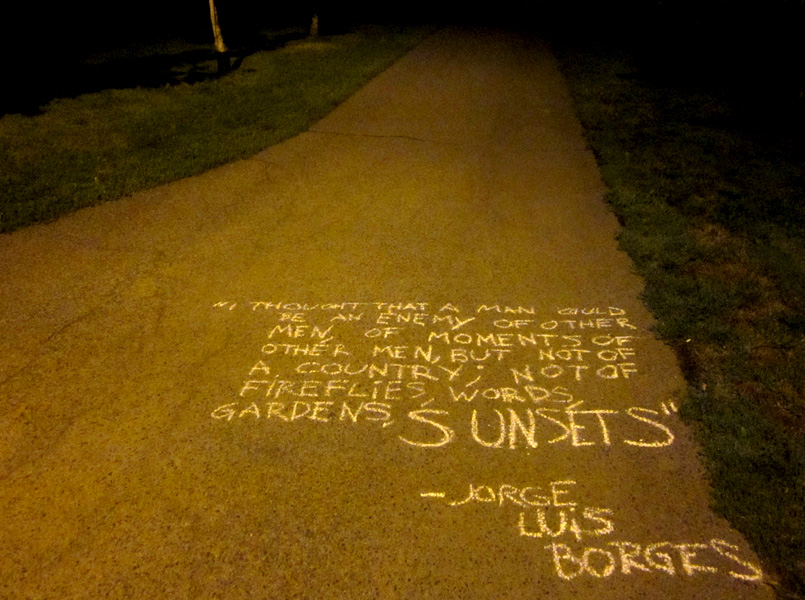 "I THOUGHT THAT A MAN COULD
BE AN ENEMY OF OTHER
MEN, OF MOMENTS OF
OTHER MEN, BUT NOT OF
A COUNTRY; NOT OF
FIREFLIES, WORDS,
GARDENS, SUNSETS"
-JORGE
LUIS
BORGES